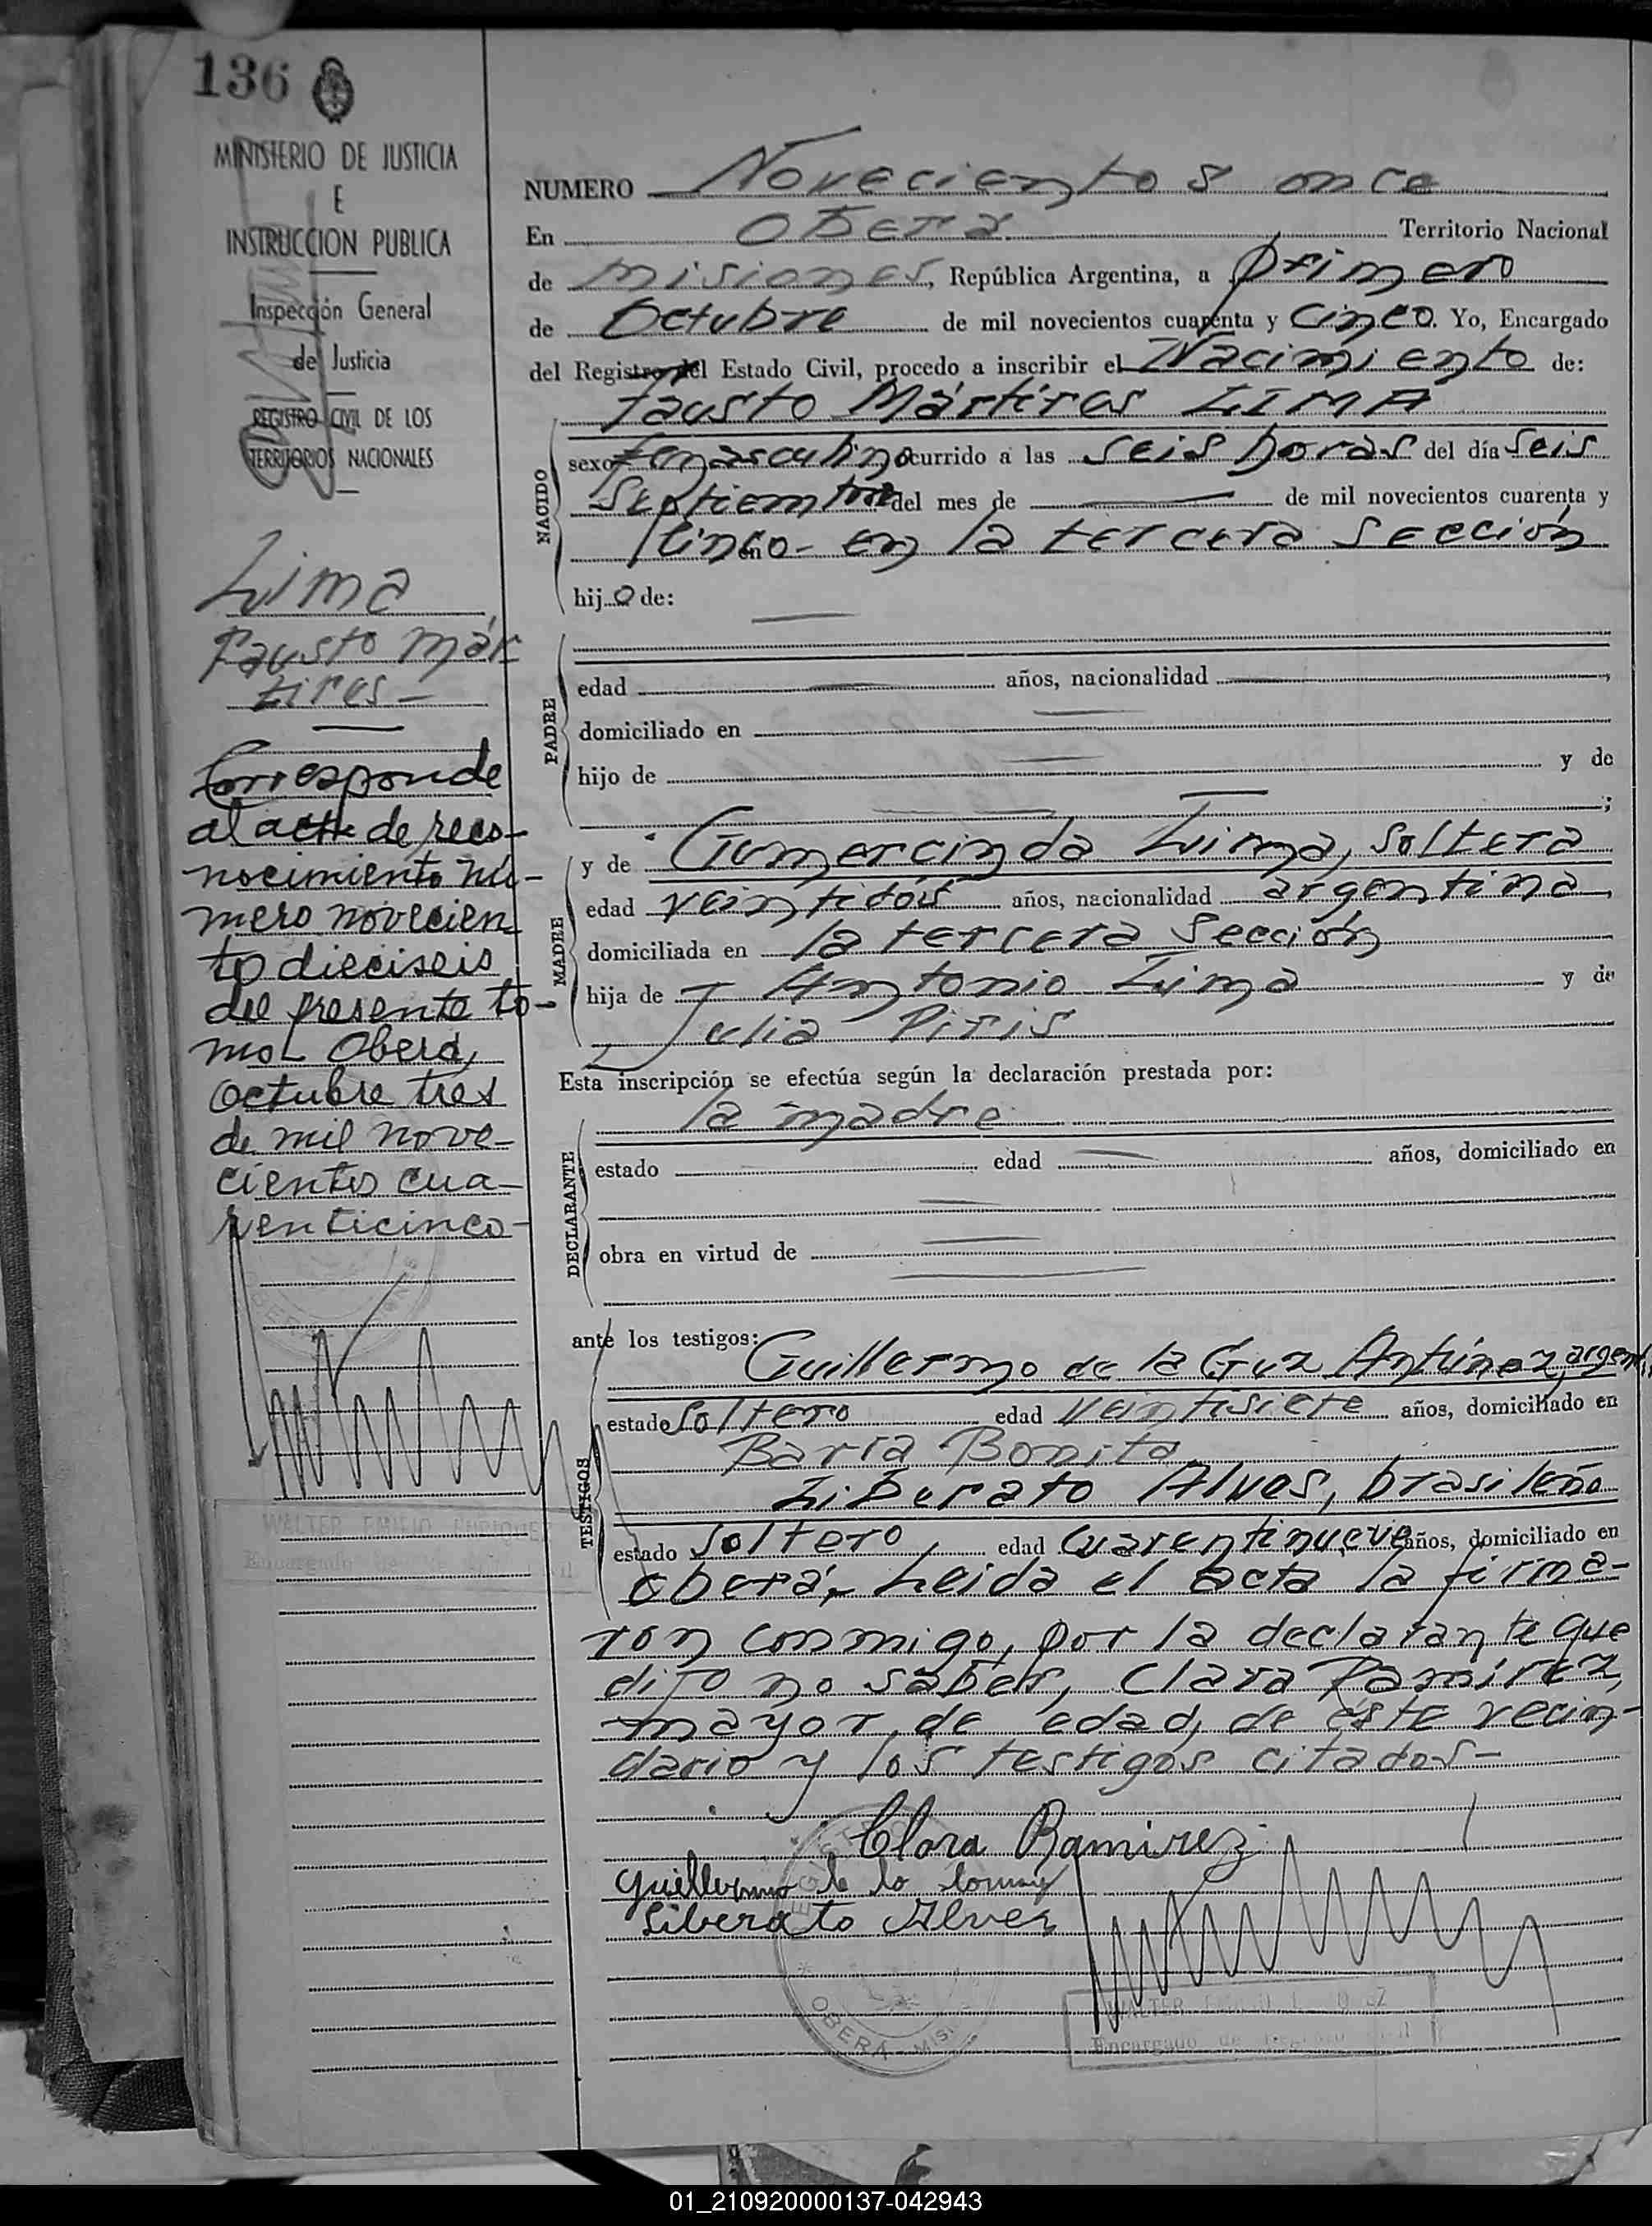 136
MINISTERIO DE JUSTICIA
E
INSTRUCCION PUBLICA
Inspección General
de Justicia
REGISTRO CIVIL DE LOS
TERRITORIOS NACIONALES
Lima
Fausto Már-
tires-
Corresponde
al acta de reco-
nocimiento nú-
mero novecien
to dieciseis
del presente to-
mo. Oberá,
octubre tres
de mil nove-
cientos cua-
renticinco-
WALTER EMILIO
Encargado de
NUMERO Novecientos once
En Oberá Territorio Nacional
de misiones, República Argentina, a primero
de Octubre de mil novecientos cuarenta y cinco. Yo, Encargado
del Registro del Estado Civil, procedo a inscribir el Nacimiento de:
Fausto Mártires LIMA
NACIDO
sexo masculino ocurrido a las seis horas del día seis
Septiembre del mes de de mil novecientos cuarenta y
cinco- en la tercera sección
hijo de:
PADRE
edad años, nacionalidad
domiciliado en
hijo de y de
;
MADRE
y de Gumercinda Lima, soltera
edad veintidós años, nacionalidad argentina
domiciliada en la tercera sección
hija de Antonio Lima y de
Julia Piris
Esta inscripción se efectúa según la declaración prestada por:
la madre
DECLARANTE
estado edad años, domiciliado en
obra en virtud de
ante los testigos:
TESTIGOS
Guillermo de la Cruz Antúnez, argent.
estado soltero edad veintisiete años, domiciliado en
Barra Bonita
Liberato Alves, brasileño
estado soltero, edad cuarentinueve años, domiciliado en
Oberá,- Leida el acta la firma-
ron conmigo, por la declarante que
dijo no saber, Clara Ramirez,
mayor de edad, de éste vecin-
dario y los testigos citados-
Clara Ramirez
Guillermo
Liberato Alves
OBERA - MIS
WALTER
Encargado de
01_210920000137-042943